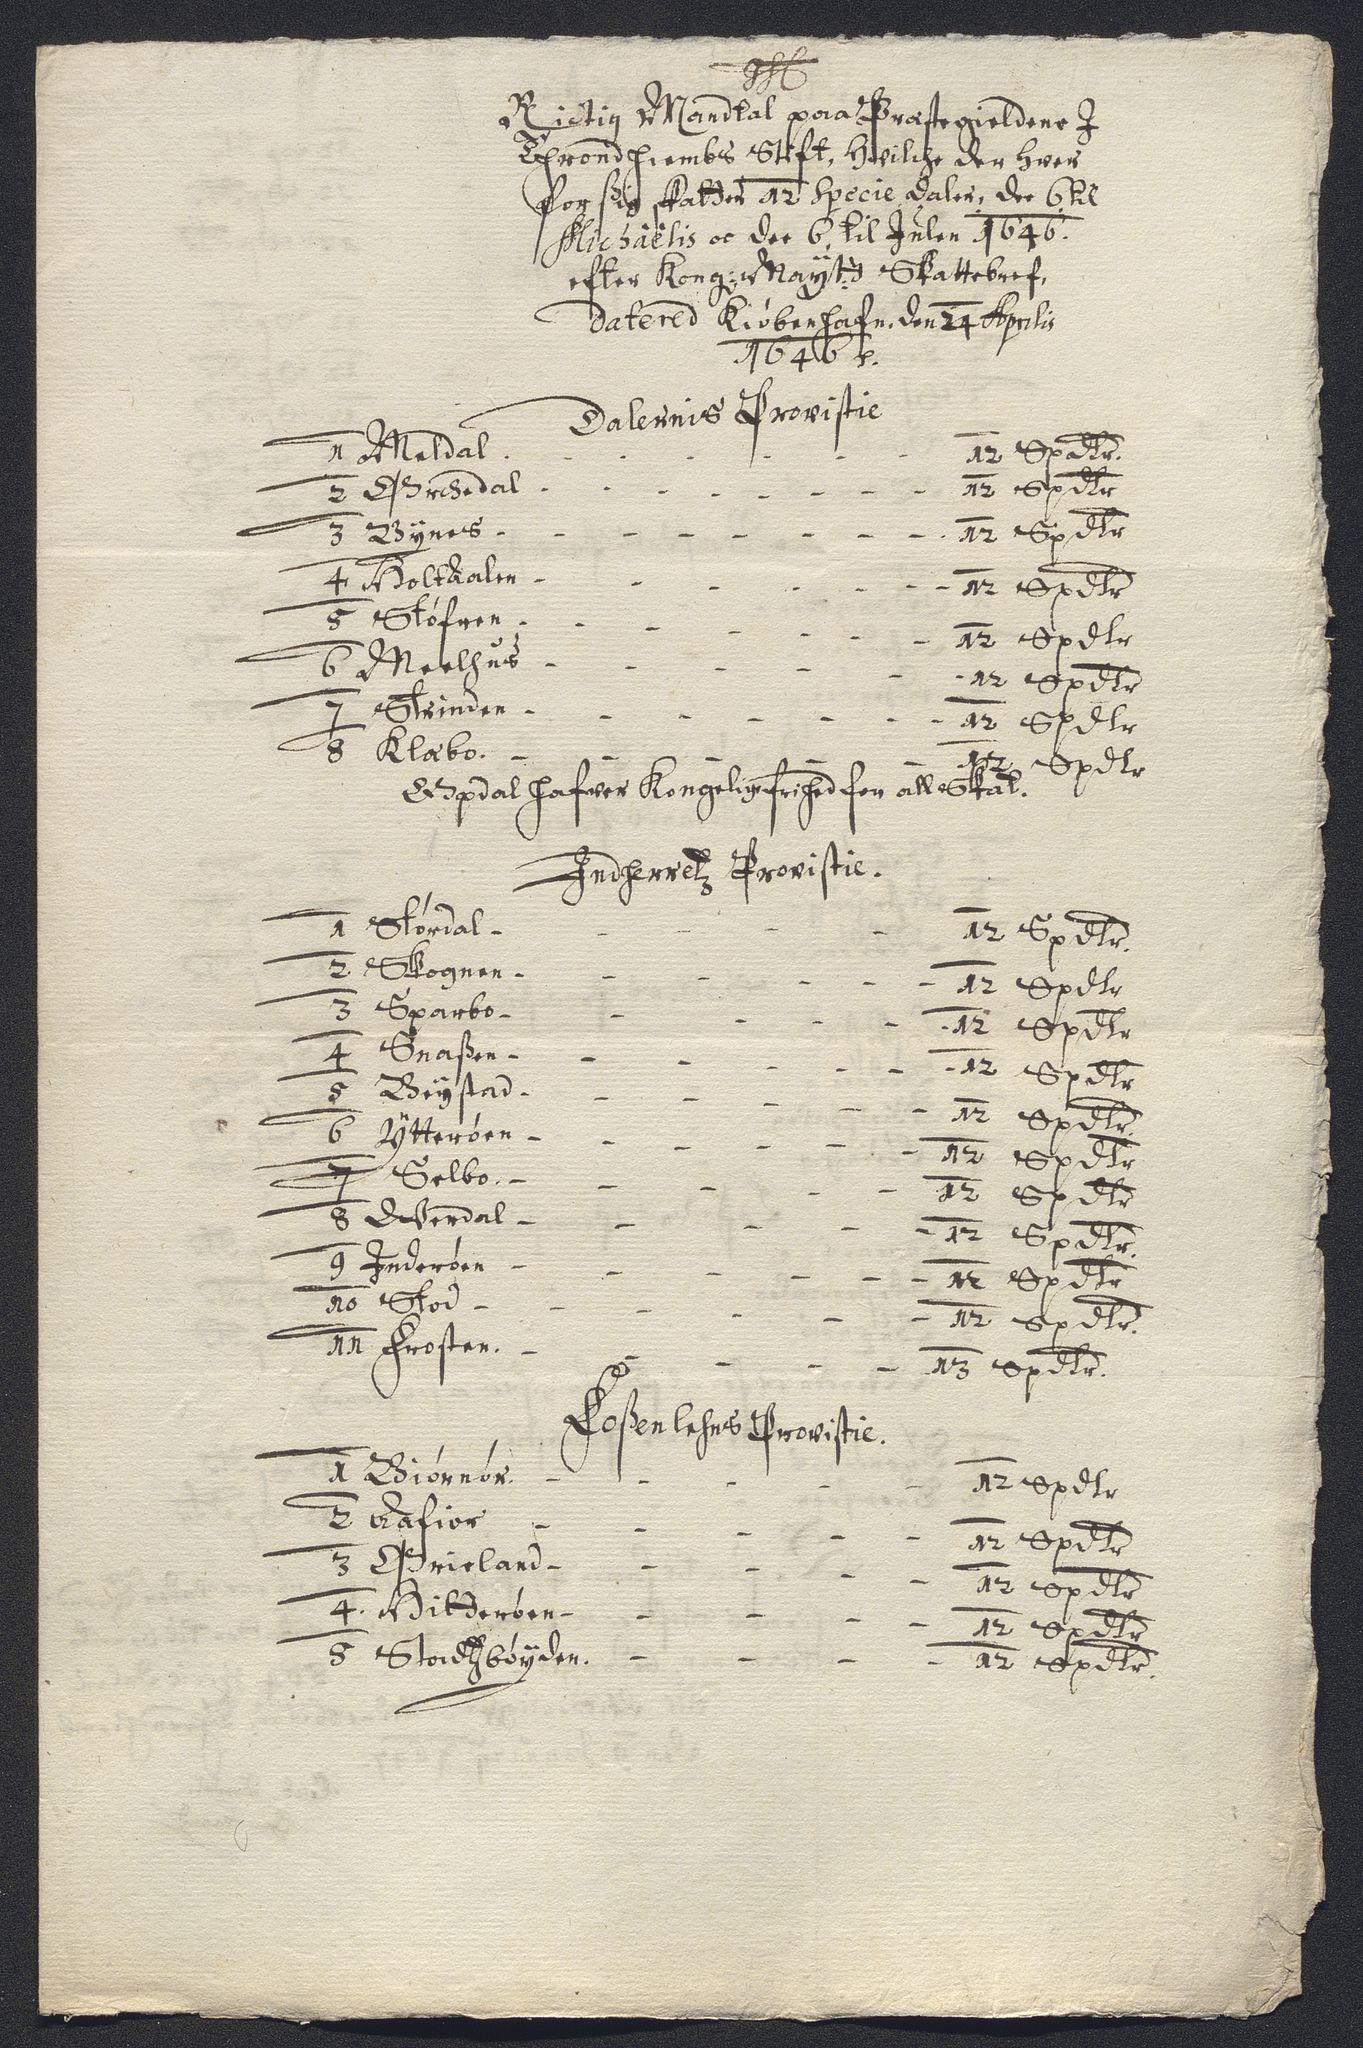 Rictig Mandtal paa Præstegieldene J
Throndhiembs Stift, hvilche der hver
for sig skatter 12 Specie daler, dee 6 til
Michaëlis oc dee 6 til Julen 1646.
efter Kong: Mayts Skattebref,
datered Kiøbenhafn. den 24 Aprilis
1646
Dalernis Provistie
1 Meldal. 12 Spdlr.
2 Orchedal 12 Spdlr
3 Bynes 12 Spdlr
4 Holtaalen 12 Spdlr
5 Støfren 12 Spdlr
6 Meelhus 12 Spdlr
7 Strinden 12 Spdlr
8 Klæbo. 12 Spdlr
Opdal hafver Kongelig frihed for all Skat.
Indherretz Provistie.
1 Størdal 12 Spdlr.
2 Skognen 12 Spdlr
3 Sparbo 12 Spdlr
4 Snaßen 12 Spdlr
5 Beystad 12 Spdlr.
6 Ÿtterøen 12 Spdlr
7 Selbo. 12 Spdlr
8 Verdal 12 Spdlr.
9 Inderøen 12 Spdlr
10 Stod 12 Spdlr.
11 Frosten. 13 Spdlr.
Foßenlehns Provistie.
1 Biørnør. 12 Spdlr
2 Aafior 12 Spdlr
3 Ørieland 12 Spdlr
4. Hitterøen 12 Spdlr
5 Stadtzbøyden. 12 Spdlr.